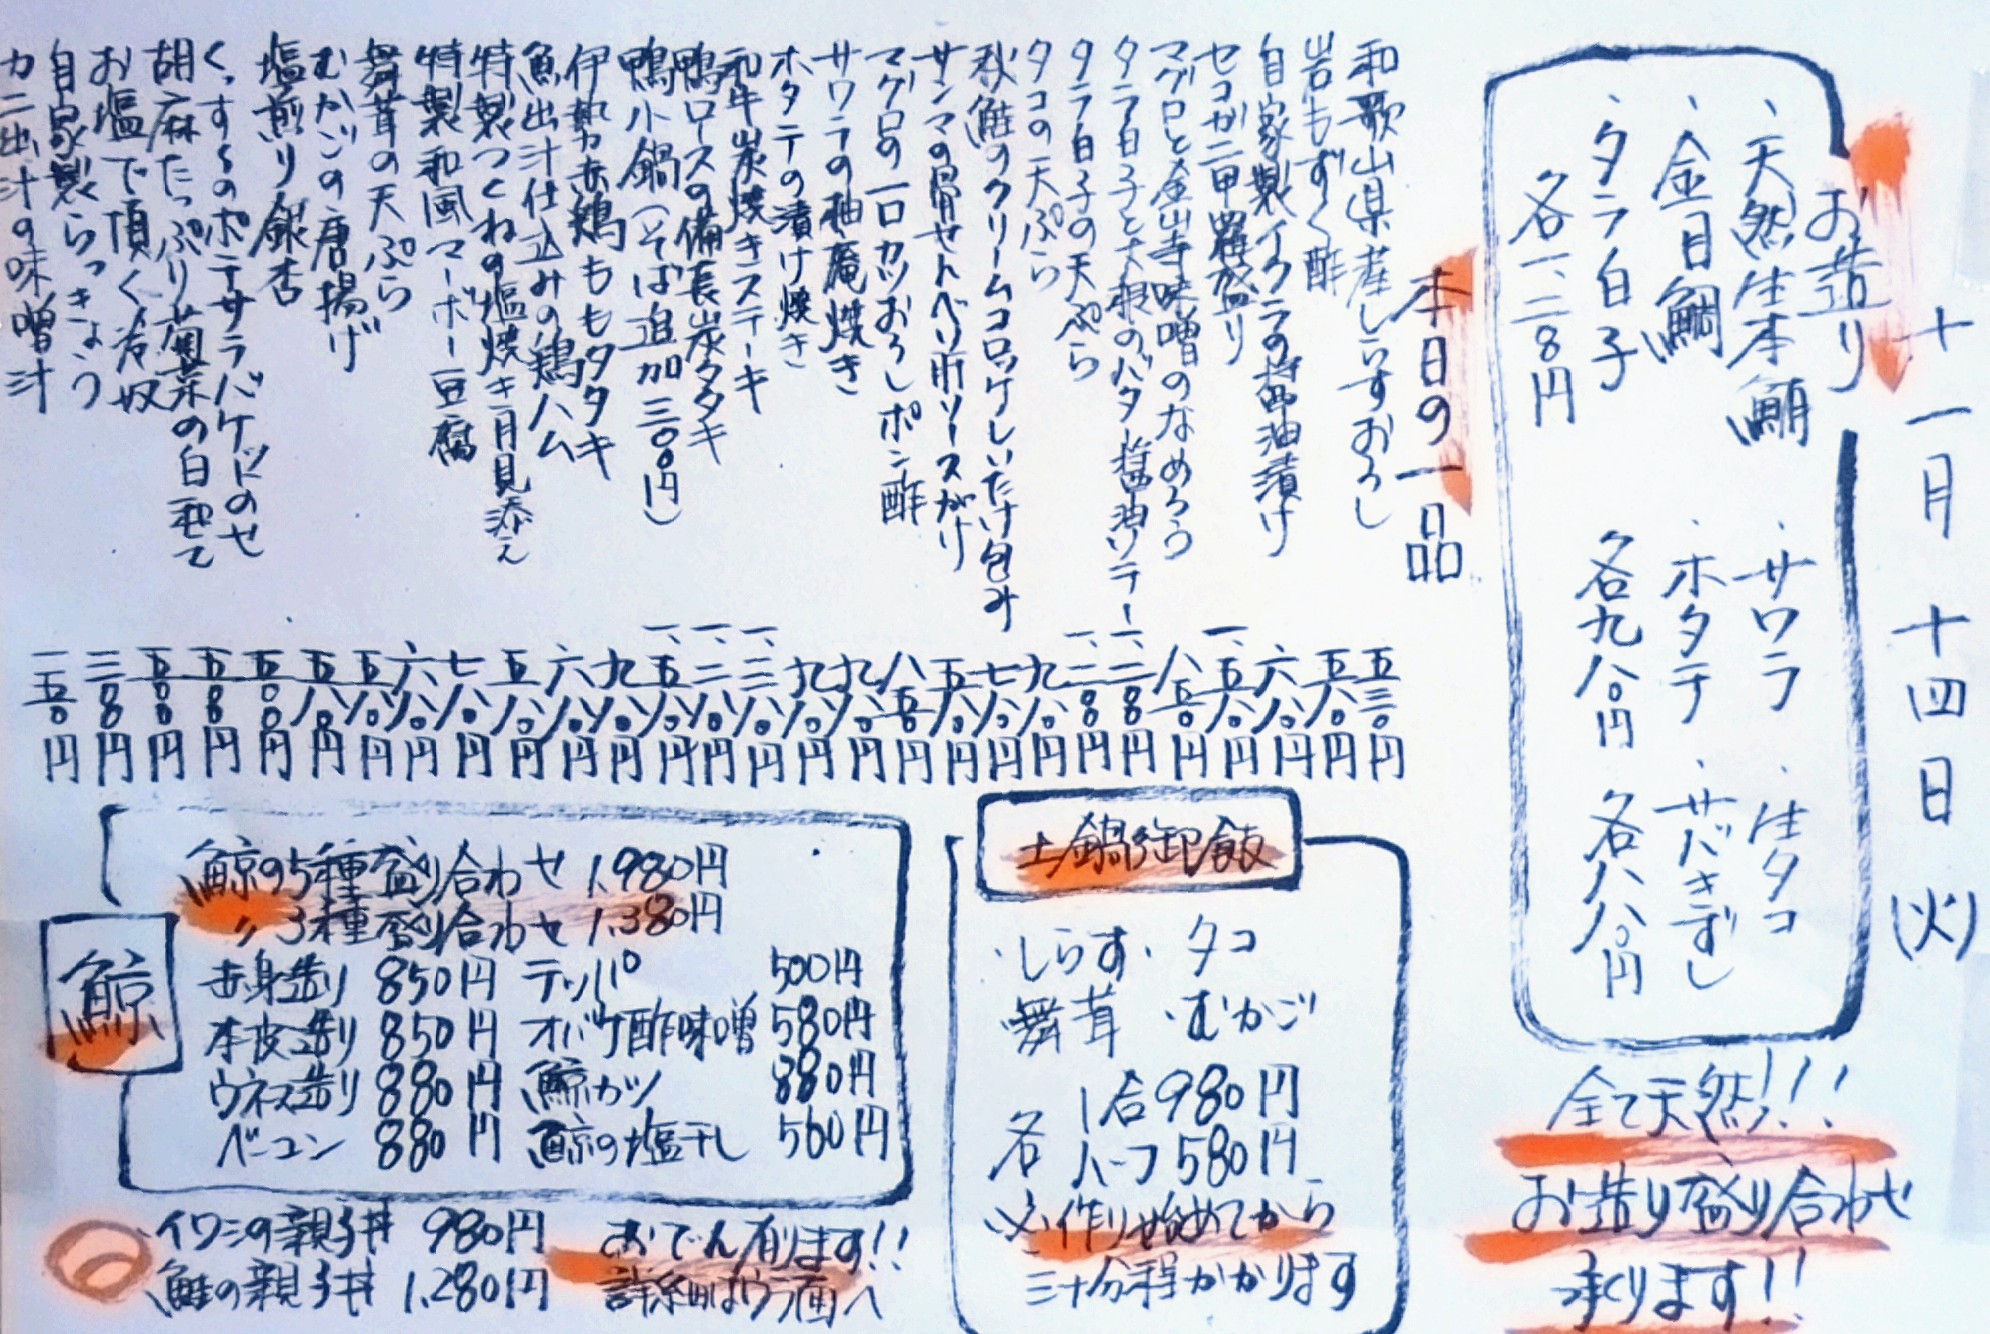 十一月十四日(火)
お造り
・天然生本鮪
・金目鯛
・タラ白子
各一、二〇〇円
・サワラ
・ホタテ
各九八〇円
・生タコ
・サバきずし
各八八〇円
全て天然!!!
お造り盛り合わせ
承ります!!
本日の一品
和歌山県産しらすおろし 五三〇円
岩もずく酢 五八〇円
自家製イクラの醤油漬け 六八〇円
セコガニ甲羅盛り 一、五八〇円
マグロと金山寺味噌のなめろう 八五〇円
タラ白子と大根のバタ醤油ソテー 一、二〇〇円
タラ白子の天ぷら 一、二〇〇円
タコの天ぷら 九八〇円
秋鮭のクリームコロッケしいたけ包み 七八〇円
サンマの骨せんべい肝ソースがけ 五八〇円
マグロの一口カツおろしポン酢 八五〇円
サワラの柚庵焼き 九八〇円
ホタテの漬け焼き 九八〇円
和牛炭焼きステーキ 一、三八〇円
鴨ロースの備長炭タタキ 一、二八〇円
鴨小鍋(そば追加三〇〇円) 一、五八〇円
伊勢赤鶏ももタタキ 九八〇円
魚出汁仕込みの鶏ハム 六八〇円
特製つくねの塩焼き月見添え 五八〇円
特製和風マーボー豆腐 七八〇円
舞茸の天ぷら 六八〇円
むかごの唐揚げ 五八〇円
塩煎り銀杏 五八〇円
ポテサラバケットのせ 五〇〇円
胡麻たっぷり菊菜の白和え 五〇〇円
お塩で頂く冷奴 五〇〇円
自家製らっきょう 三〇〇円
カニ出汁の味噌汁 一五〇円
土鍋御飯
・しらす・タコ
舞茸・むかご
各 1合980円
ハーフ580円
作り始めてから
三十分程かかります
鯨
鯨の5種盛り合わせ 1,980円
〃3種盛り合わせ 1,380円
赤身造り 850円 テッパ 500円
本皮造り 850円 オバケ酢味噌 580円
ウネス造り 880円 鯨カツ 880円
ベーコン 880円 鯨の塩干し 560円
イワシの親子丼 980円
鮭の親子丼 1,280円
おでん有ります!!
詳細はウラ面へ